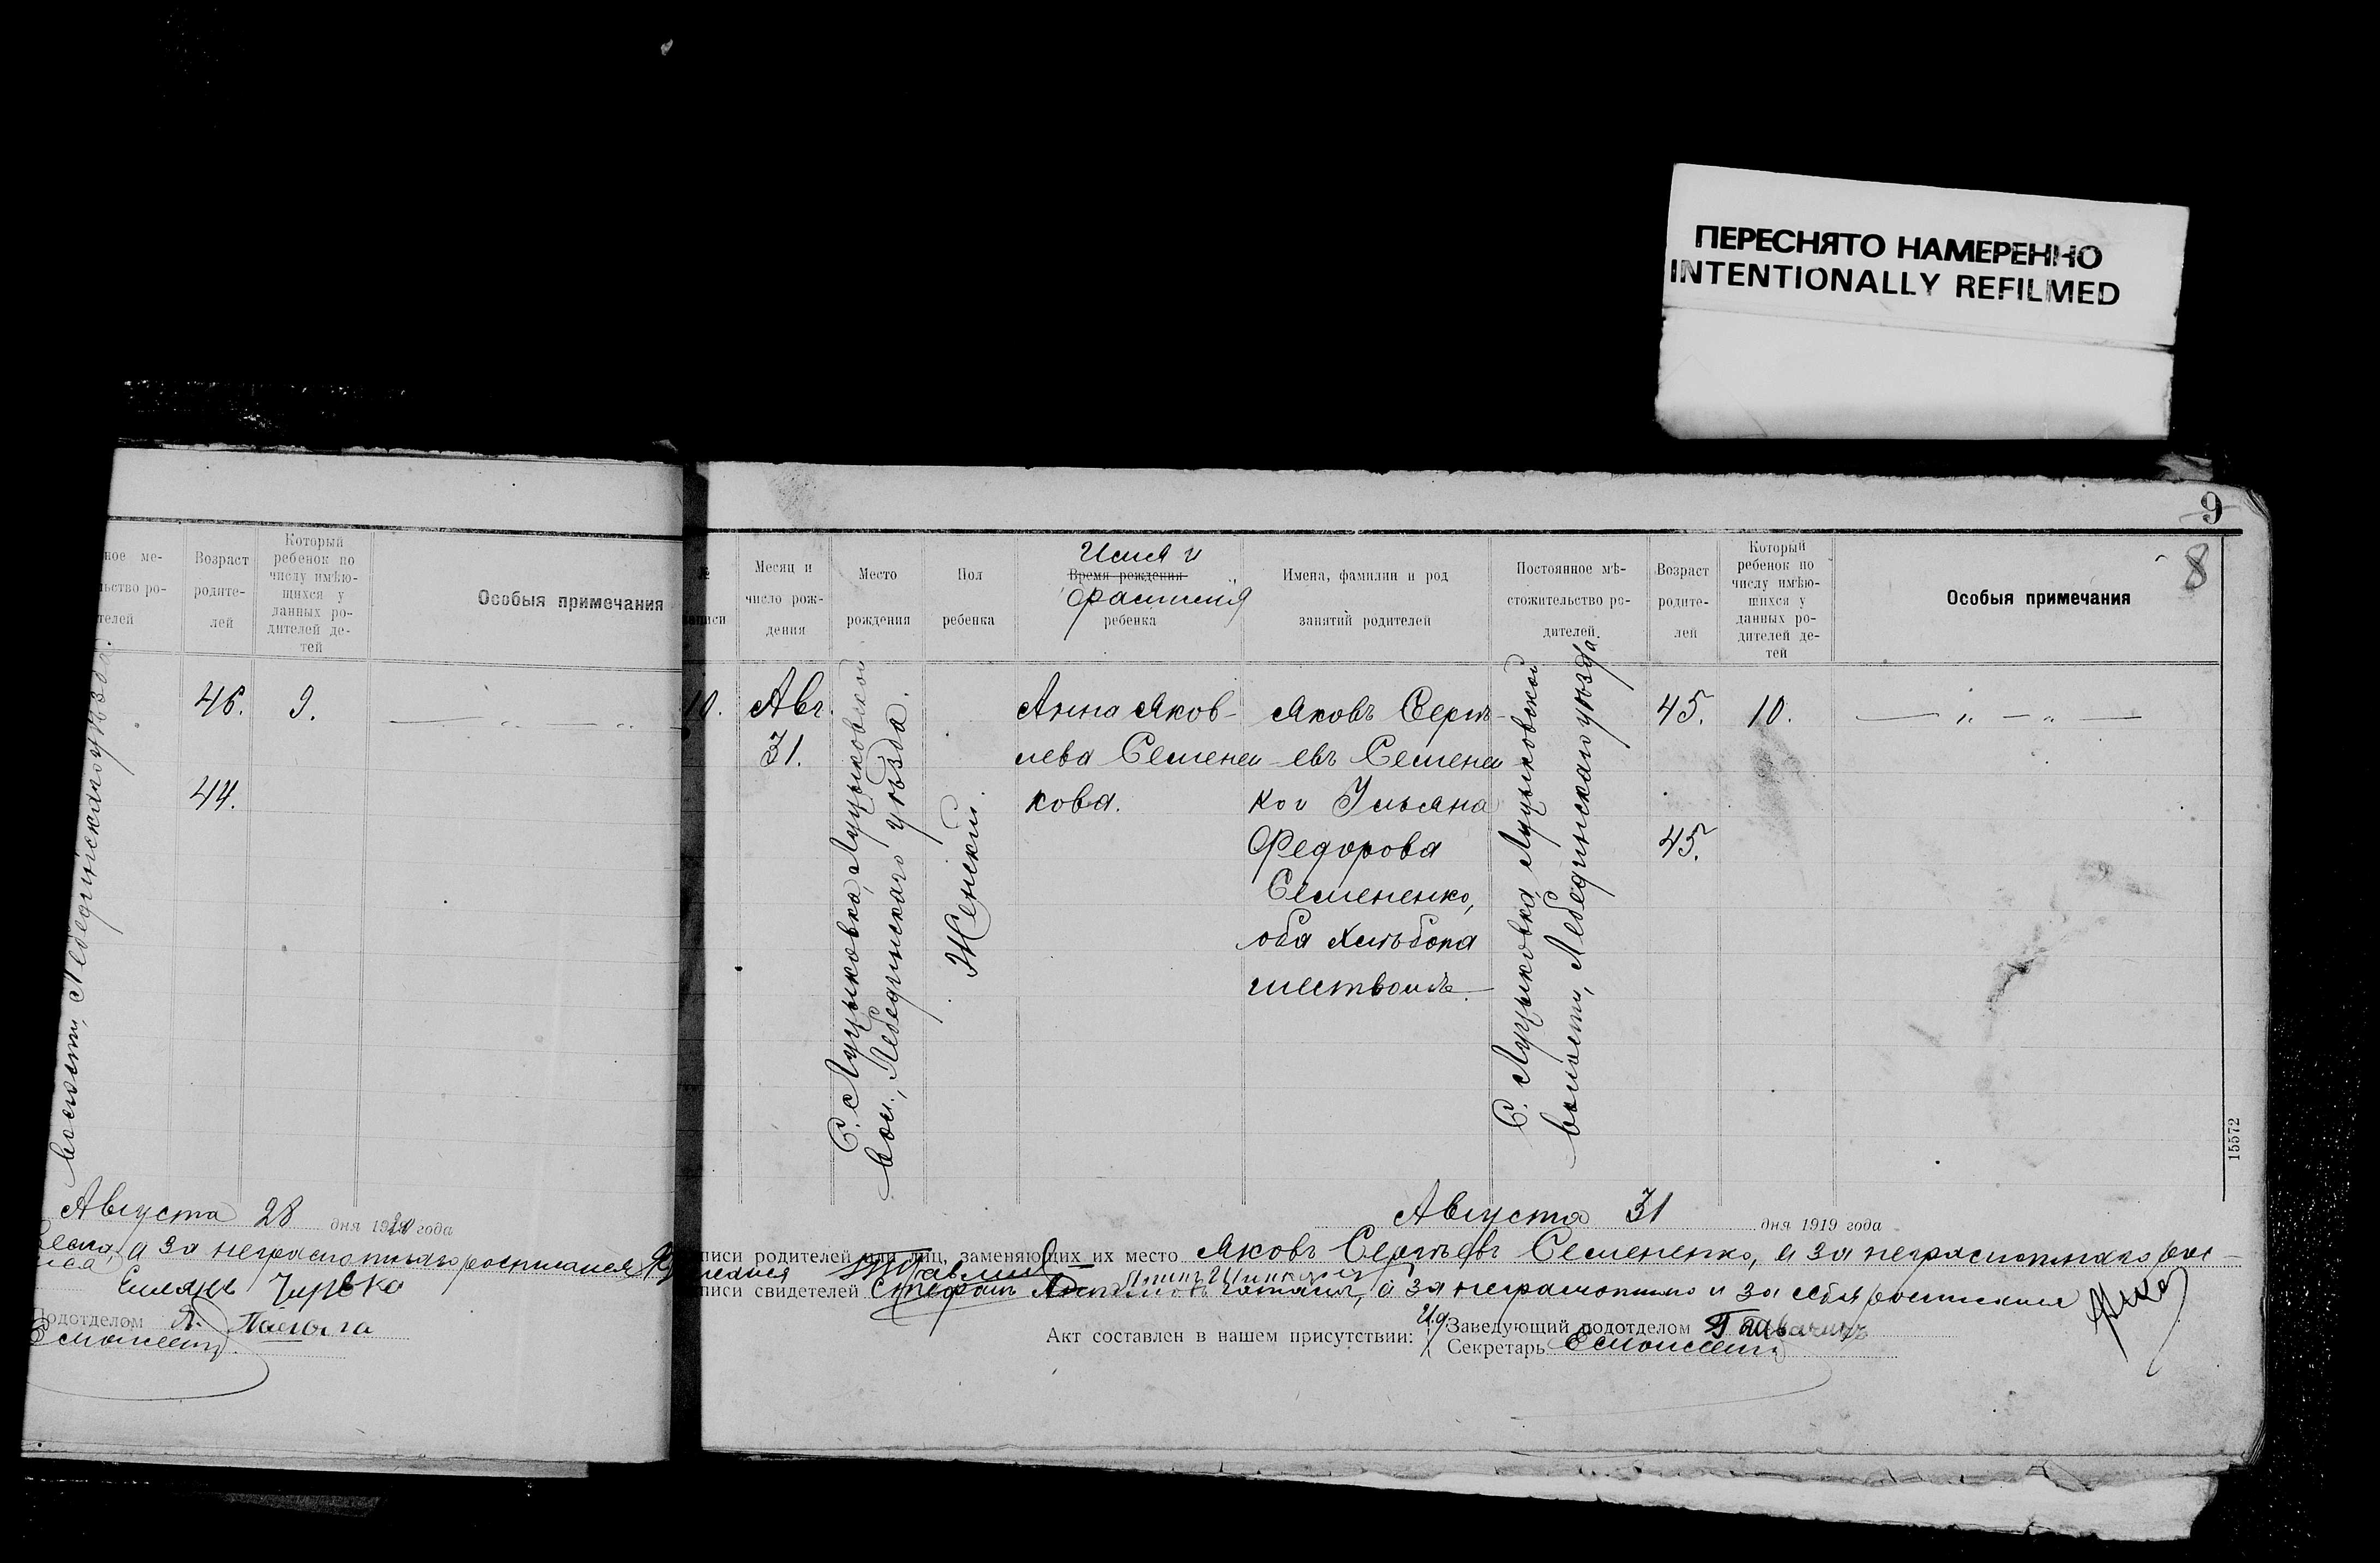 ПЕРЕСНЯТО НАМЕРЕННО
INTENTIONALLY REFILMED
ное ме-
льство ро-
телей
Возраст
родите-
лей
Который
ребенок по
числу имѣю-
щихся у
данных ро-
дителей де-
тей
Особыя примечания
волости, Лебединскаго уѣзда.
46.
9.
44.
Августа 28 дня 19 года
а за неграмотнаго росписался
Емлянъ
Подотделом
9
8
№
записи
Месяц и
число рож-
дения
Место
рождения
Пол
ребенка
Имя и
Время рождения
фамилія
ребенка
Имена, фамилии и род
занятий родителей
Постоянное мѣ-
стожительство ро-
дителей.
Возраст
родите-
лей
Который
ребенок по
числу имѣю-
щихся у
данных ро-
дителей де-
тей
Особыя примечания
10.
Авг.
31.
С. Луцыковка, Луцыковской
вол., Лебединскаго уѣзда.
Женский.
Анна Яков-
лева Семенен
кова.
Яковъ Сергѣ-
евъ Семенен
ко и Ульяна
Федорова
Семененко,
оба хлѣбопа
шествомъ.
С. Луцыковка, Луцыковской
волости, Лебединскаго уѣзда.
45.
10.
45.
15572
Августа 31 дня 1919 года
писи родителей или лиц, заменяющих их место Яковъ Сергѣевъ Семененко, а за неграмотнаго рос-
писи свидетелей Стефанъ а за неграмотнаго и за себя росписался
Акт составлен в нашем присутствии:
И.д. Заведующий подотделом
Секретарь